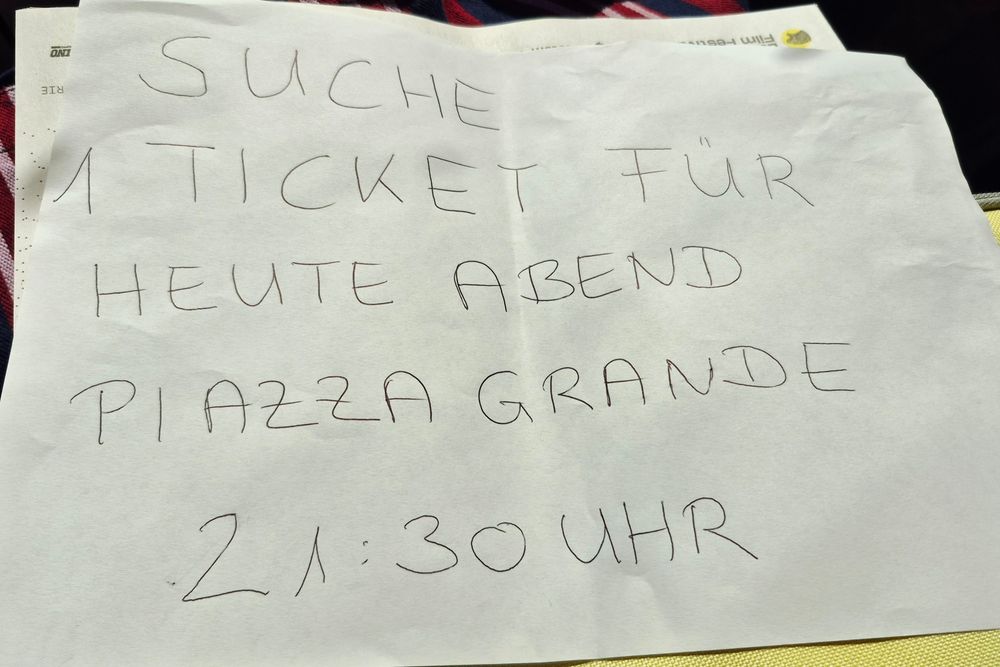 SUCHE
1 TICKET FÜR
HEUTE ABEND
PIAZZA GRANDE
21:30 UHR
Film Festiv